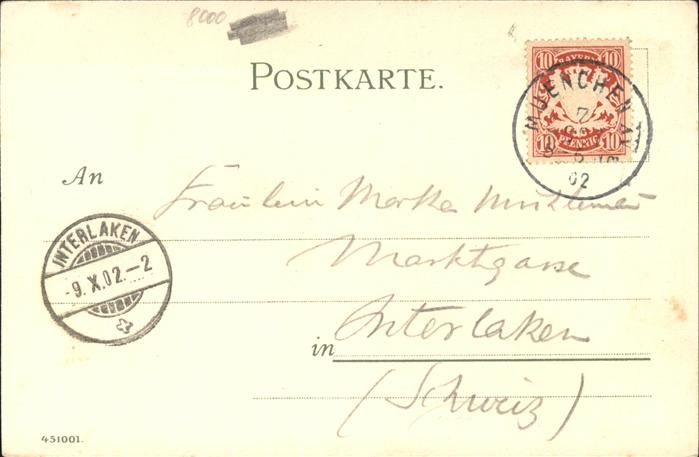 8000
POSTKARTE.
BAYERN
10 10
PFENNIG
10 10
MUENCHEN
7
02
An Fräulein
Marktgasse
in Interlaken
(Schweiz)
INTERLAKEN
-9.X.02.-2
451001.